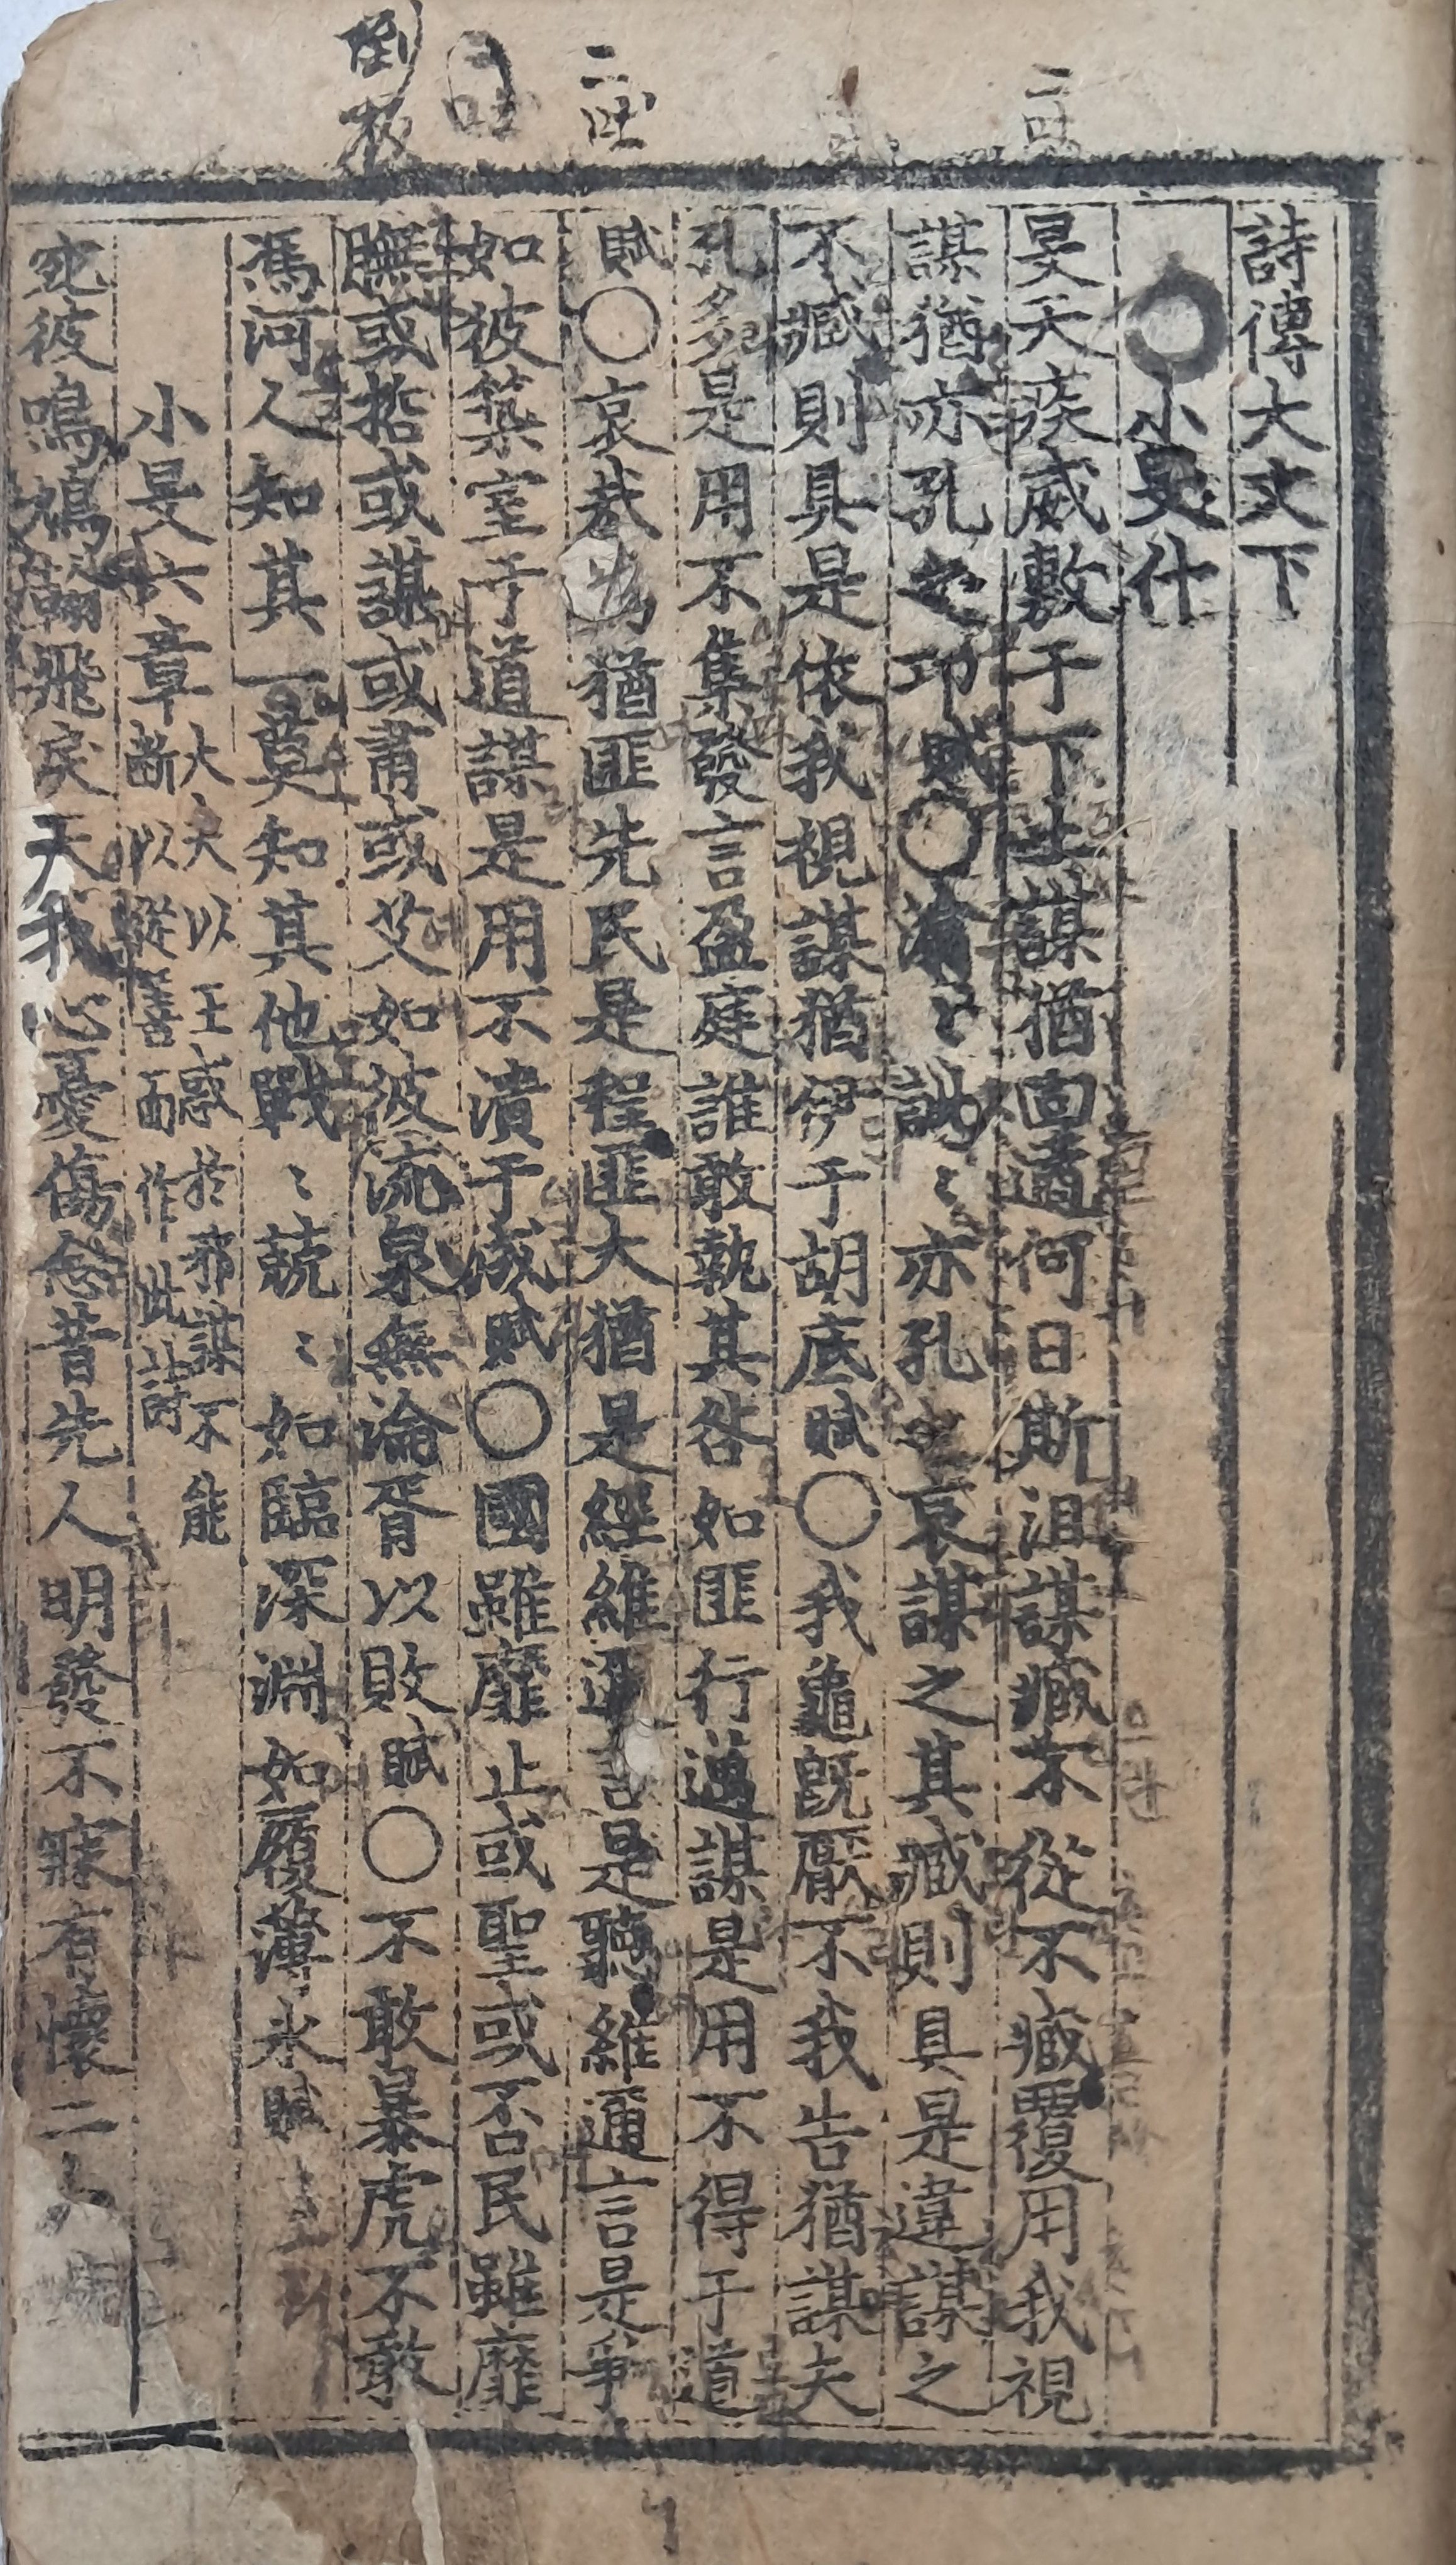 詩傳大文下
○小旻什
旻天疾威敷于下土謀猶回遹何日斯沮謀臧不從不臧覆用我視
謀猶亦孔之邛賦○潝〻訿〻亦孔之哀謀之其臧則具是違謀之
不臧則具是依我視謀猶伊于胡底賦○我龜旣厭不我告猶謀夫
孔多是用不集發言盈庭誰敢執其咎如匪行邁謀是用不得于道
賦○哀哉爲猶匪先民是程匪大猶是經維邇言是聽維邇言是爭
如彼築室于道謀是用不潰于成賦○國雖靡止或聖或否民雖靡
膴或哲或謀或肅或艾如彼流泉無淪胥以敗賦○不敢暴虎不敢
馮河人知其一莫知其他戰〻兢〻如臨深淵如履薄氷賦
小旻六章大夫以王惑於邪謀不能
斷以從善而作此詩
宛彼鳴鳩翰飛戾天我心憂傷念昔先人明發不寐有懷二人